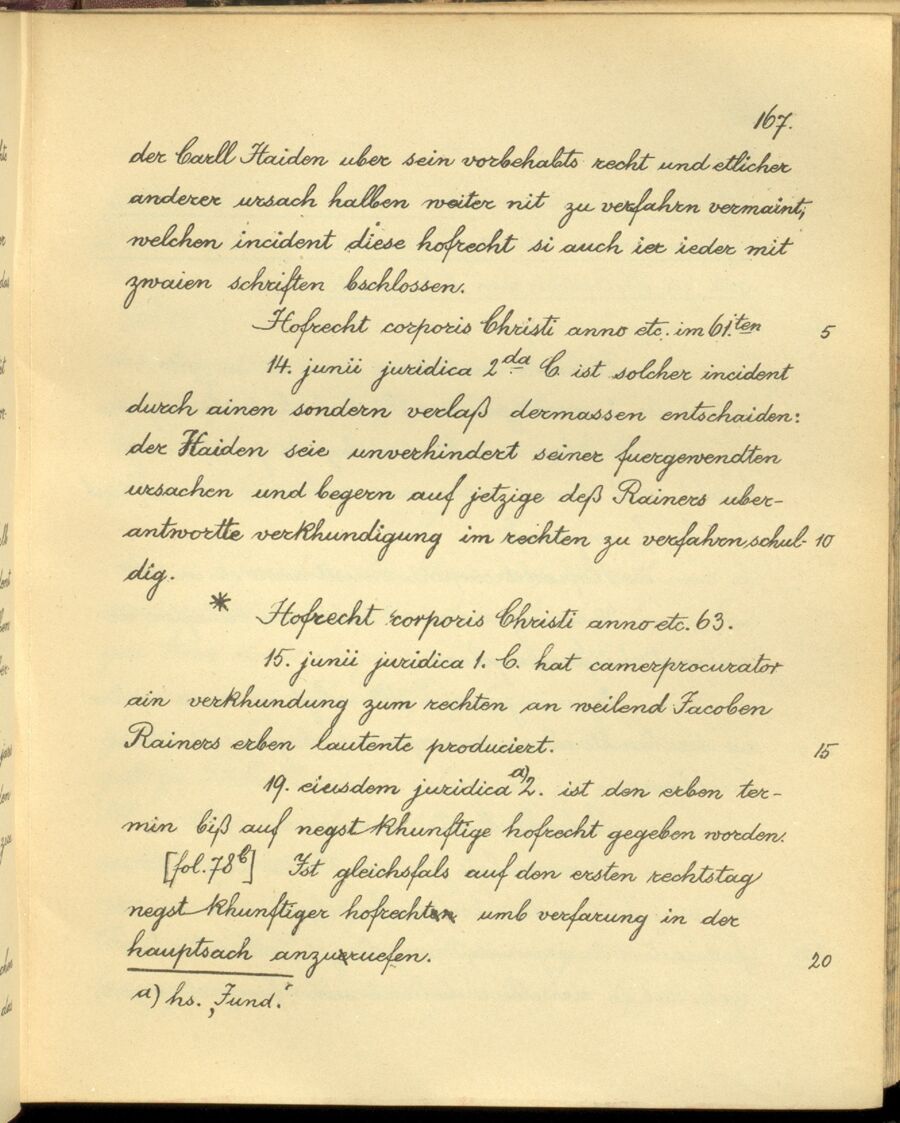 167.
der Carll Haiden uber sein vorbehabts recht und etlicher
anderer ursach halben weiter nit zu verfahrn vermaint,
welchen incident diese hofrecht si auch ier ieder mit
zwaien schriften bschlossen.
Hofrecht corporis Christi anno etc. im 61.ten 5
14. junii juridica 2da C ist solcher incident
durch ainen sondern verlaß dermassen entschaiden:
der Haiden seie unverhindert seiner fuergewendten
ursachen und begern auf jetzige deß Rainers uber-
antwortte verkhundigung im rechten zu verfahrn schul- 10
dig.
* Hofrecht corporis Christi anno etc. 63.
15. junii juridica 1. C. hat camerprocurator
ain verkhundung zum rechten an weilend Jacoben
Rainers erben lautente produciert. 15
19. eiusdem juridica a) 2. ist den erben ter-
min biß auf negst khunftige hofrecht gegeben worden.
[fol. 78b] Ist gleichsfals auf den ersten rechtstag
negst khunftiger hofrecht umb verfarung in der
hauptsach anzuruefen. 20
a) hs. ‚Jund.‘